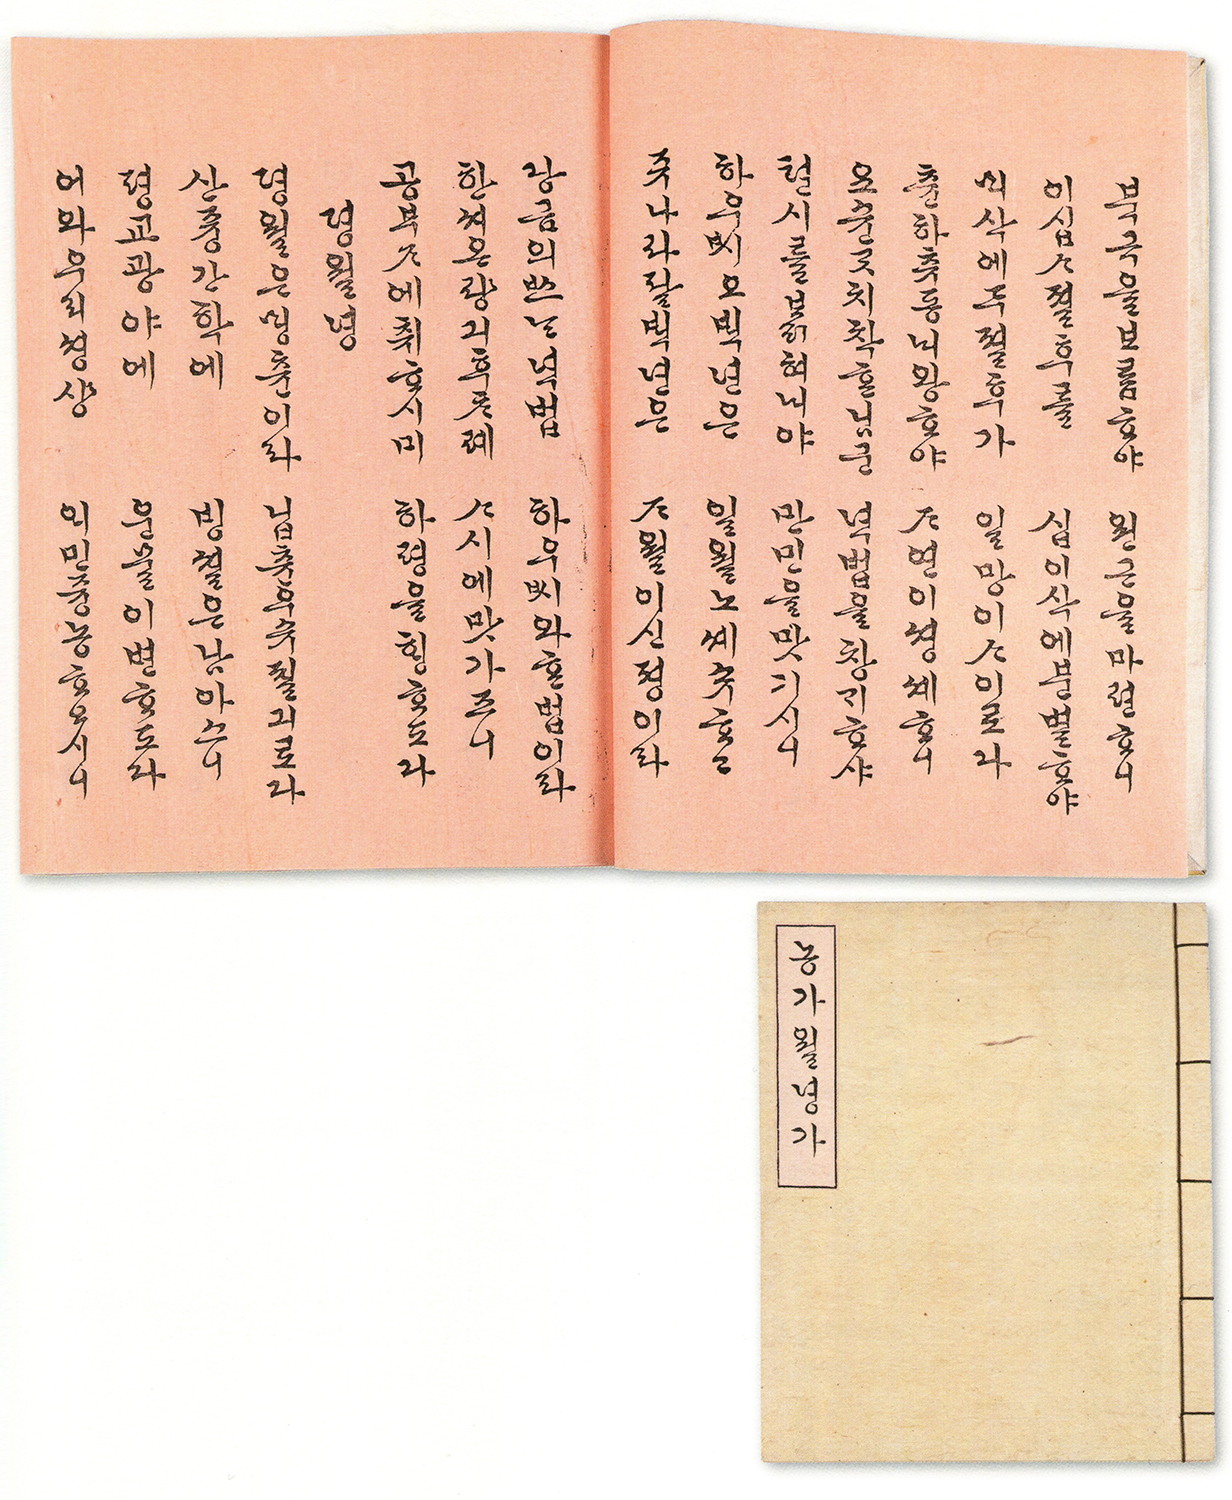 북극을보롬ᄒᆞ야 원근을마련ᄒᆞ니
이십ᄉᆞ졀후를 십이삭에분별ᄒᆞ야
ᄆᆡ삭에두졀후가 일망이ᄉᆞ이로라
츈하츄동ᄂᆡ왕ᄒᆞ야 ᄌᆞ연이셩셰ᄒᆞ니
요슌ᄀᆞᆺ치착ᄒᆞᆫ님군 녁법을창ᄀᆡᄒᆞ샤
텬시를ᄇᆞᆰ혀ᄂᆡ야 만민을맛기시니
하우씨오ᄇᆡᆨ년은 일월노셰슈ᄒᆞ고
쥬나라팔ᄇᆡᆨ년은 ᄌᆞ월이신졍이라
당금의쓰ᄂᆞᆫ녁법 하우씨와ᄒᆞᆫ법이라
한셔온량긔후ᄎᆞ례 ᄉᆞ시에맛가ᄌᆞ니
공부ᄌᆞ에취ᄒᆞ시미 하령을ᄒᆡᆼᄒᆞ도다
졍월녕
졍월은ᄆᆡᆼ츈이라 닙츈우슈졀긔로다
산즁간학에 빙셜은남아스니
평교광야에 운물이변ᄒᆞ도다
어와우리셩샹 ᄋᆡ민즁농ᄒᆞ오시니
농가월녕가